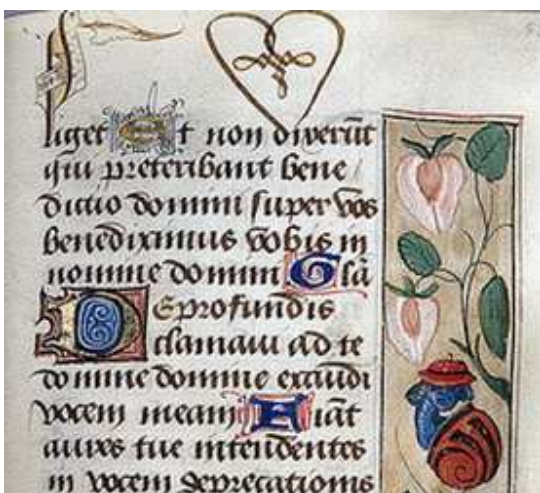 liget Et non dixerūt
qui preteribant bene
dictio domini super vos
benediximus vobis in
nomine domini Glā
De profundis
clamavi ad te
domine domine exaudi
vocem meam Fiāt
aures tue intendentes
in vocem deprecationis